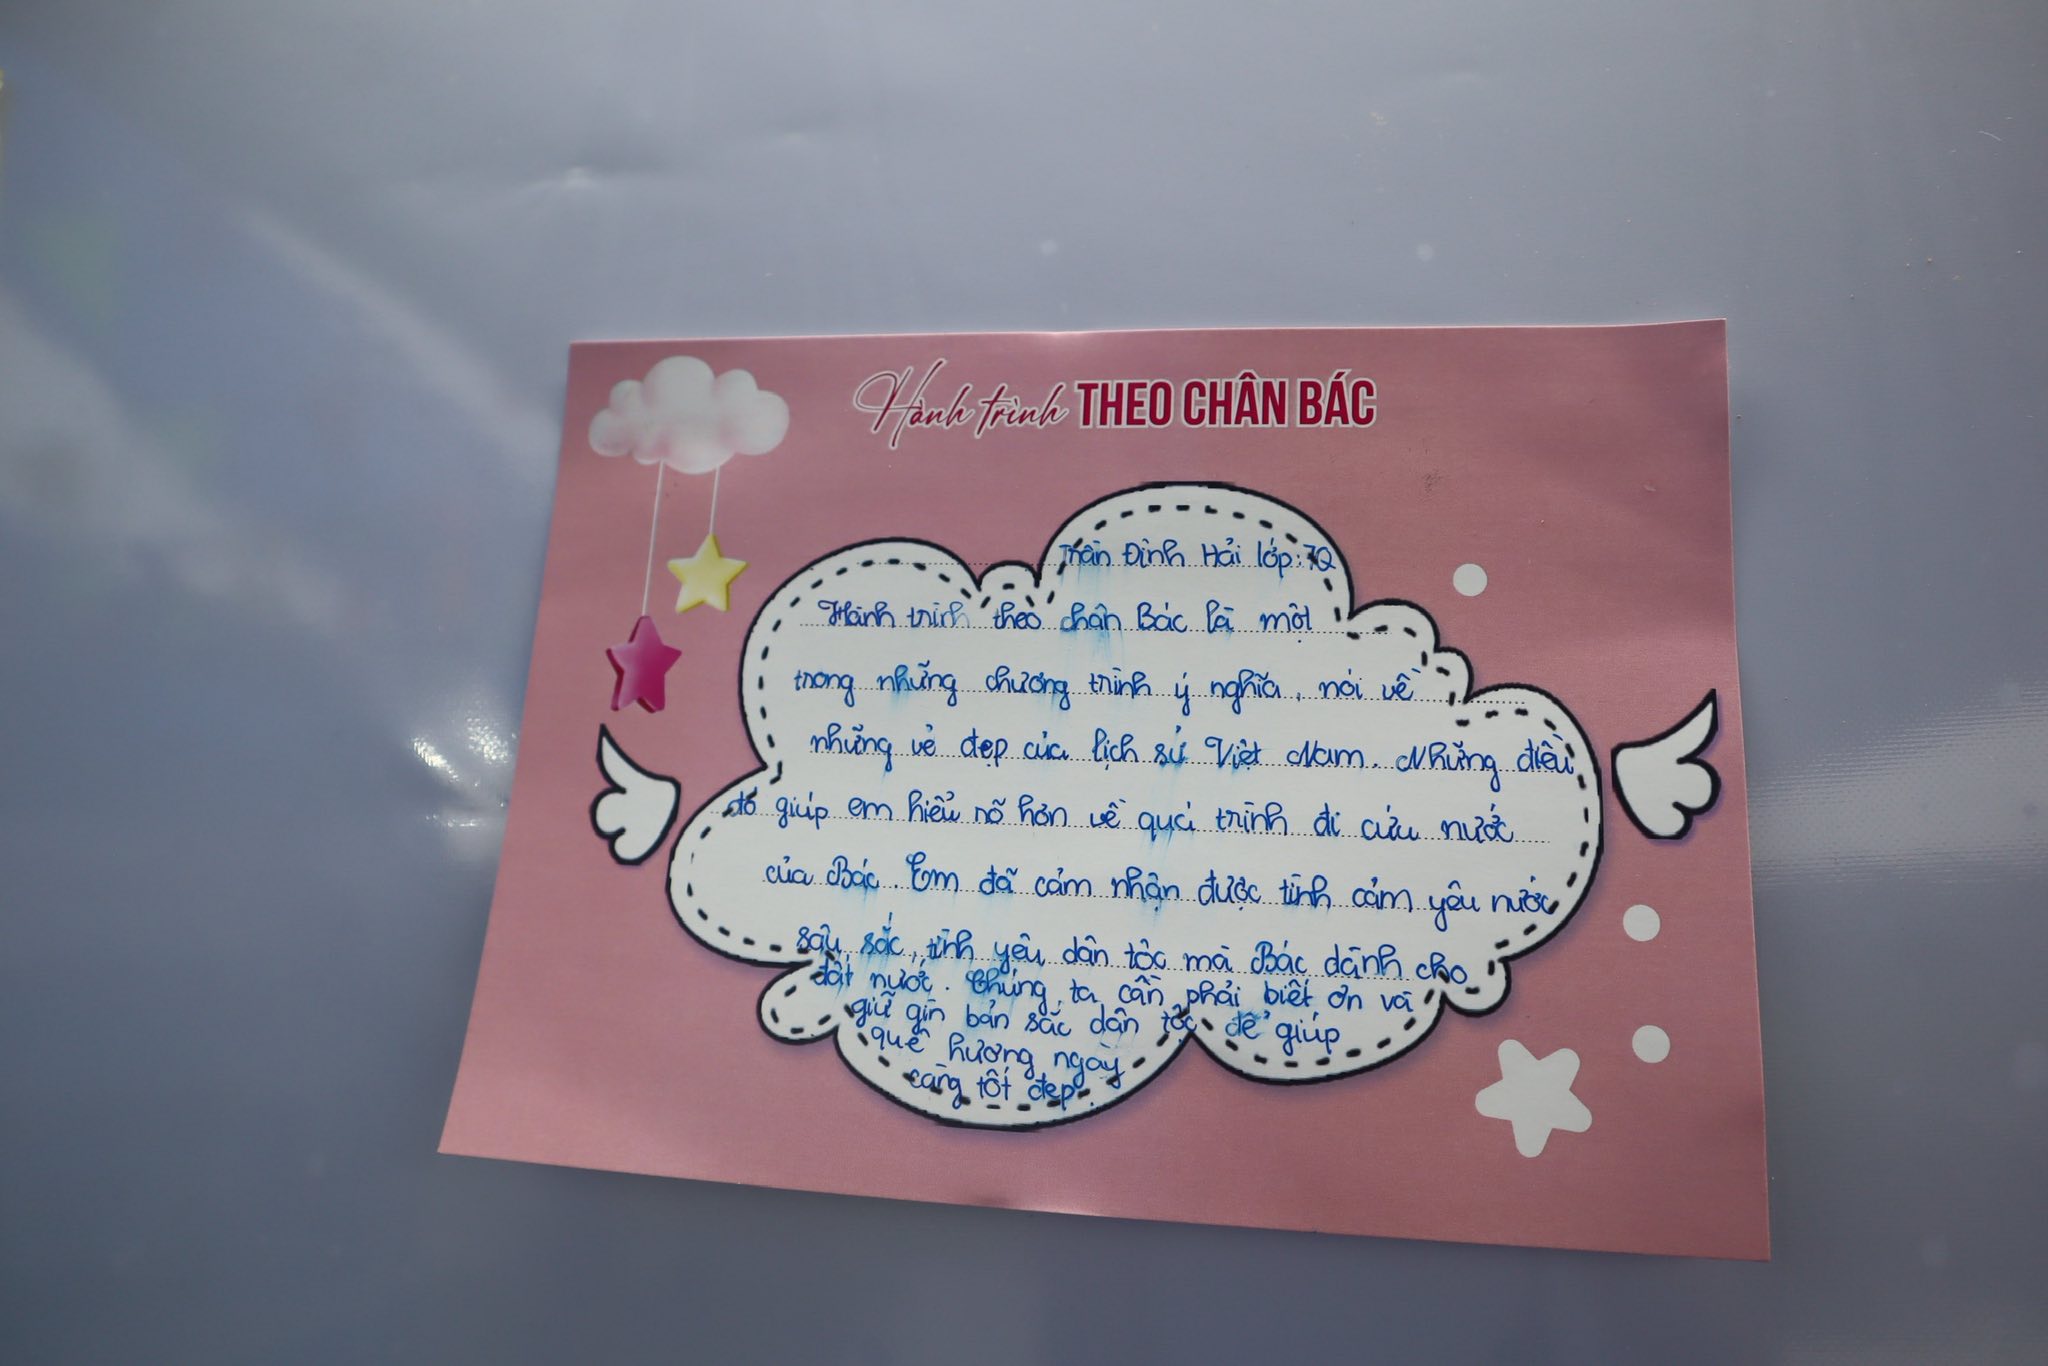 Hành trình THEO CHÂN BÁC
Trần Đình Hải lớp: 7Q
Hành trình theo chân Bác là một
trong những chương trình ý nghĩa, nói về
những vẻ đẹp của lịch sử Việt Nam. Những điều
đó giúp em hiểu rõ hơn về quá trình đi cứu nước
của Bác. Em đã cảm nhận được tình cảm yêu nước
sâu sắc, tình yêu dân tộc mà Bác dành cho
đất nước. Chúng ta cần phải biết ơn và
giữ gìn bản sắc dân tộc để giúp
quê hương ngày
càng tốt đẹp.